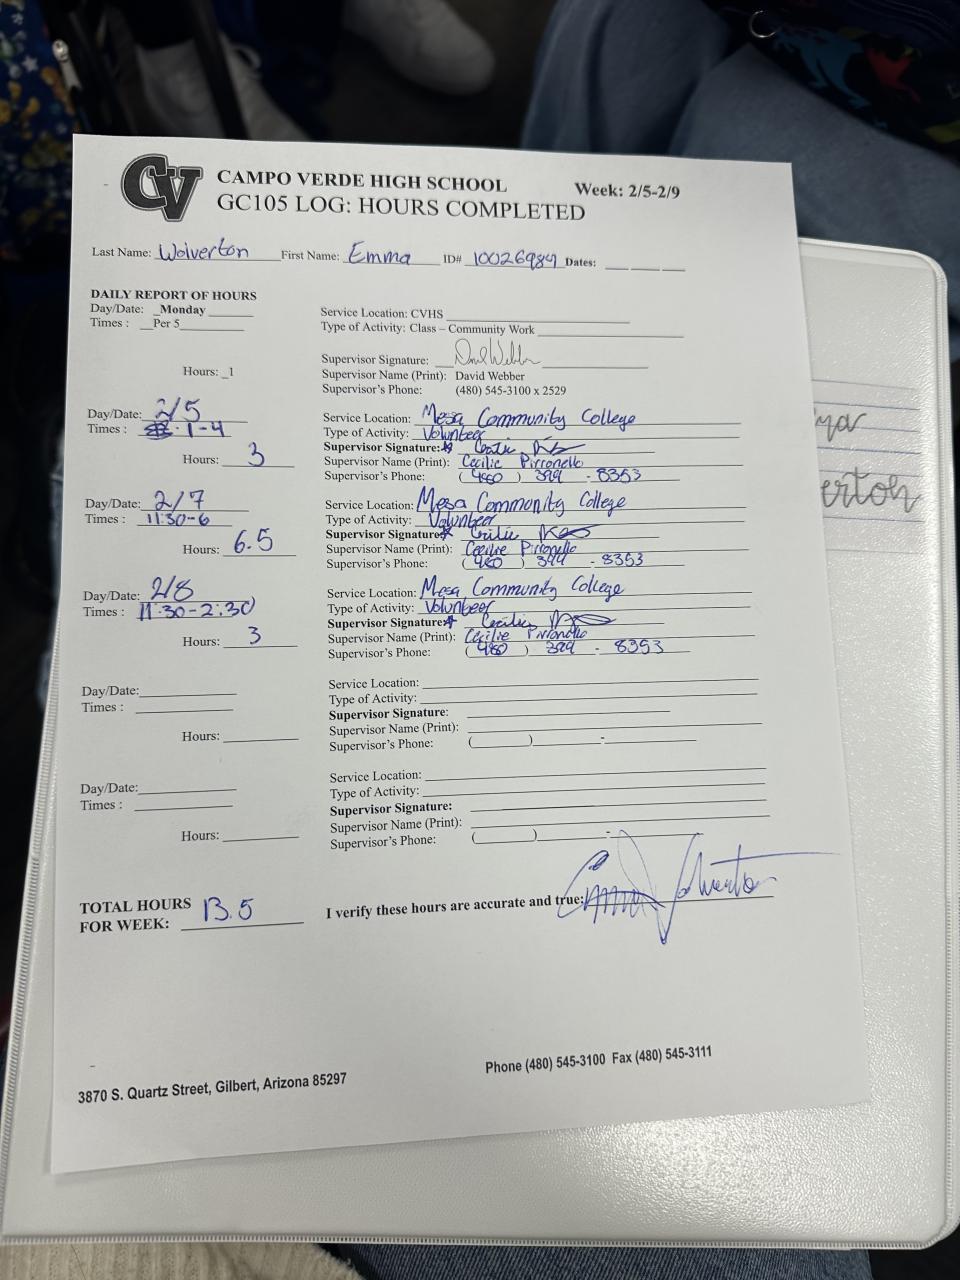 CV
CAMPO VERDE HIGH SCHOOL Week: 2/5-2/9
GC105 LOG: HOURS COMPLETED
Last Name: Wolverton First Name: Emma ID# 10026984 Dates: ___ ___ ___
DAILY REPORT OF HOURS
Day/Date: _Monday
Times : __Per 5
Service Location: CVHS
Type of Activity: Class – Community Work
Supervisor Signature: David Webber
Hours: _1
Supervisor Name (Print): David Webber
Supervisor's Phone: (480) 545-3100 x 2529
Day/Date: 2/5
Times : 1-4
Hours: 3
Service Location: Mesa Community College
Type of Activity: Volunteer
Supervisor Signature:
Supervisor Name (Print): Cecilie Pirronello
Supervisor's Phone: (480) 399 - 8353
Day/Date: 2/7
Times : 11:30-6
Hours: 6.5
Service Location: Mesa Community College
Type of Activity: Volunteer
Supervisor Signature:
Supervisor Name (Print): Cecilie Pirronello
Supervisor's Phone: (480) 399 - 8353
Day/Date: 2/8
Times : 11:30-2:30
Hours: 3
Service Location: Mesa Community College
Type of Activity: Volunteer
Supervisor Signature:
Supervisor Name (Print): Cecilie Pirronello
Supervisor's Phone: (480) 399 - 8353
Day/Date:
Times :
Hours:
Service Location:
Type of Activity:
Supervisor Signature:
Supervisor Name (Print):
Supervisor's Phone: ( ) -
Day/Date:
Times :
Hours:
Service Location:
Type of Activity:
Supervisor Signature:
Supervisor Name (Print):
Supervisor's Phone: ( ) -
TOTAL HOURS
FOR WEEK: 13.5
I verify these hours are accurate and true: Emma Wolverton
3870 S. Quartz Street, Gilbert, Arizona 85297
Phone (480) 545-3100 Fax (480) 545-3111